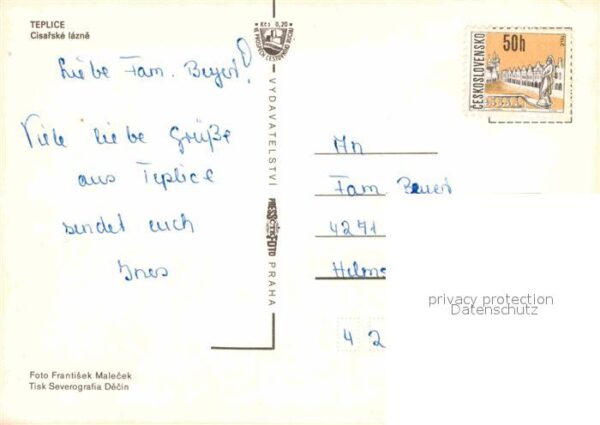 TEPLICE
Císařské lázně
Kčs 0,20
50h
ČESKOSLOVENSKO
Telč
Liebe Fam. Beyert!
Viele liebe Grüße
aus Teplice
sendet euch
Ines
VYDAVATELSTVÍ
PRESSFOTO
PRAHA
An
Fam Beyert
4271
Helm
4 2
privacy protection
Datenschutz
Foto František Maleček
Tisk Severografia Děčín